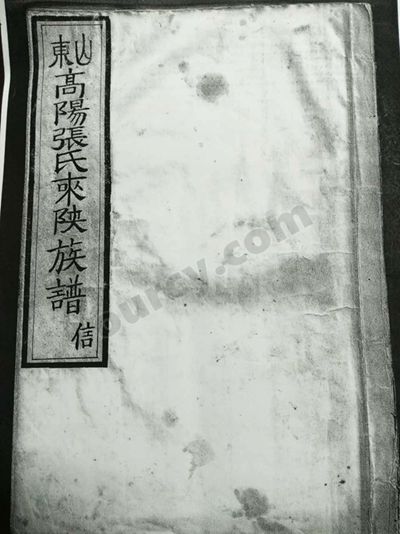 山東
高陽張氏來陝族譜
信
ourcy.com